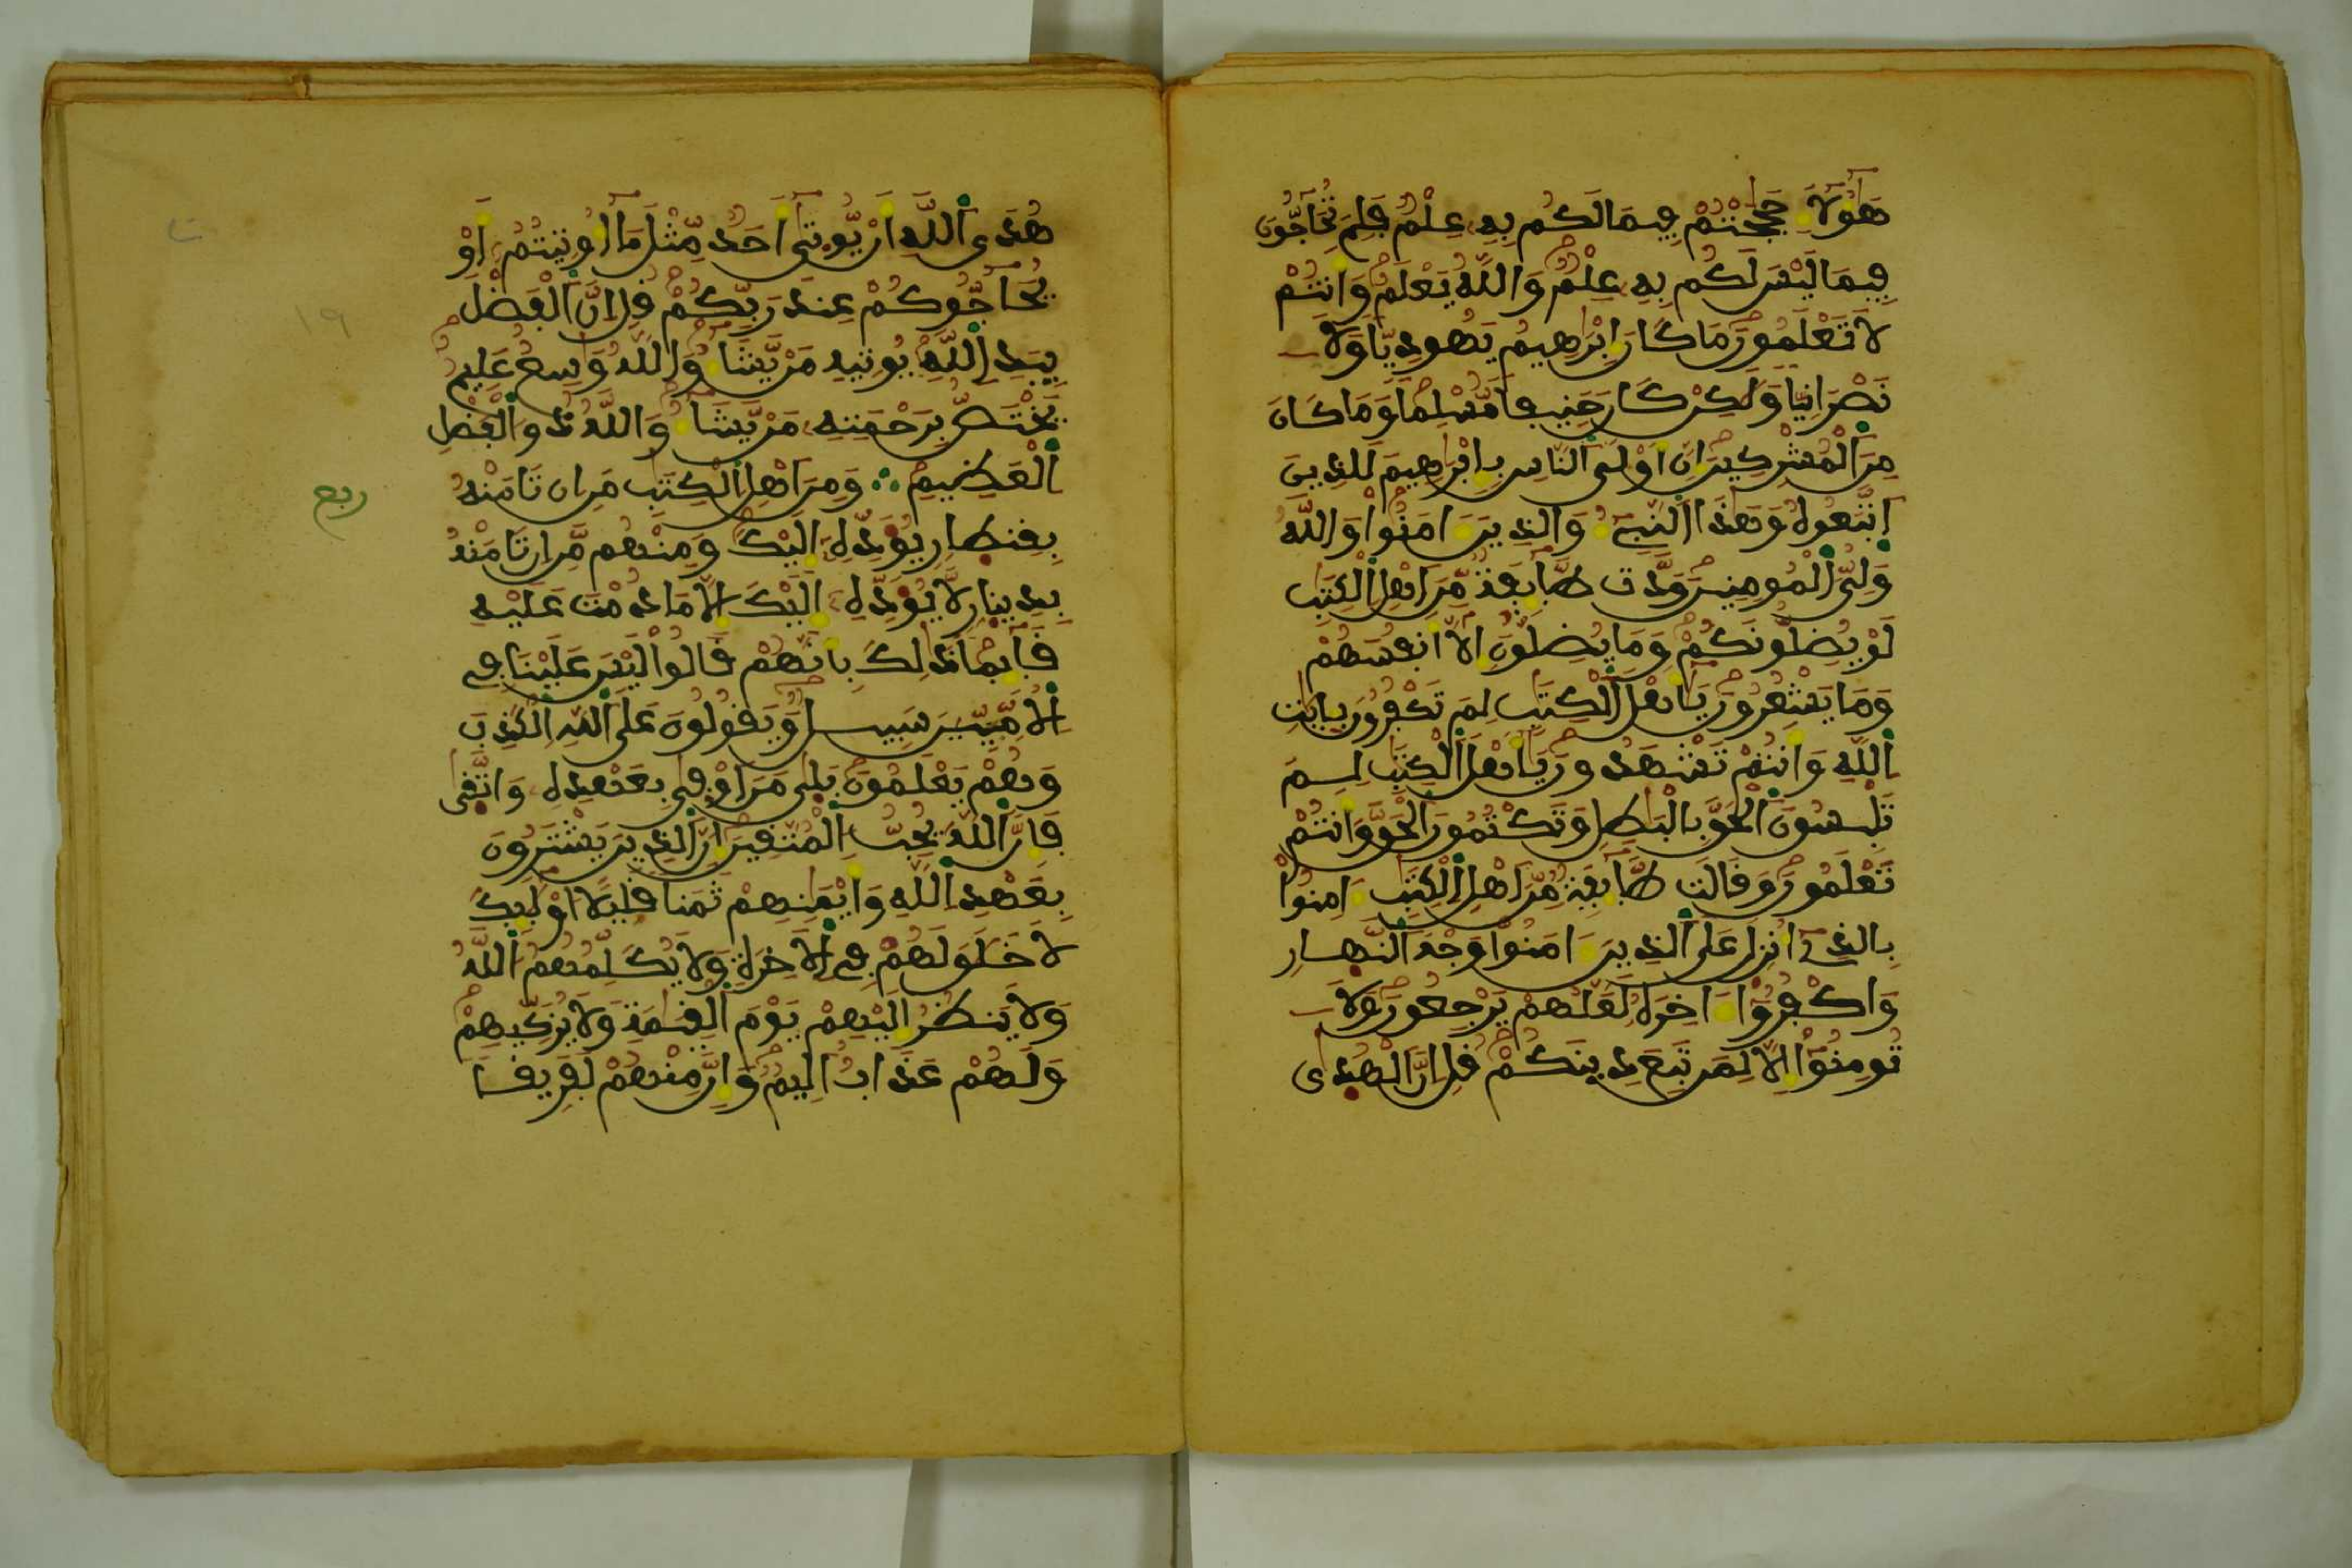 هَٰؤُلَآءِ حَٰجَجْتُمْ فِيمَا لَكُم بِهِۦ عِلْمٌ فَلِمَ تُحَآجُّونَ
فِيمَا لَيْسَ لَكُم بِهِۦ عِلْمٌ وَاللَّهُ يَعْلَمُ وَأَنتُمْ
لَا تَعْلَمُونَ مَا كَانَ إِبْرَٰهِيمُ يَهُودِيًّا وَلَا
نَصْرَانِيًّا وَلَٰكِن كَانَ حَنِيفًا مُّسْلِمًا وَمَا كَانَ
مِنَ الْمُشْرِكِينَ إِنَّ أَوْلَى النَّاسِ بِإِبْرَٰهِيمَ لَلَّذِينَ
اتَّبَعُوهُ وَهَٰذَا النَّبِيءُ وَالَّذِينَ ءَامَنُوا وَاللَّهُ
وَلِيُّ الْمُومِنِينَ وَدَّت طَّآئِفَةٌ مِّنَ اهْلِ الْكِتَٰبِ
لَوْ يُضِلُّونَكُمْ وَمَا يُضِلُّونَ إِلَّا أَنفُسَهُمْ
وَمَا يَشْعُرُونَ يَٰٓأَهْلَ الْكِتَٰبِ لِمَ تَكْفُرُونَ بِـَٔايَٰتِ
اللَّهِ وَأَنتُمْ تَشْهَدُونَ يَٰٓأَهْلَ الْكِتَٰبِ لِمَ
تَلْبِسُونَ الْحَقَّ بِالْبَٰطِلِ وَتَكْتُمُونَ الْحَقَّ وَأَنتُمْ
تَعْلَمُونَ وَقَالَت طَّآئِفَةٌ مِّنَ اهْلِ الْكِتَٰبِ ءَامِنُوا
بِالَّذِي أُنزِلَ عَلَى الَّذِينَ ءَامَنُوا وَجْهَ النَّهَارِ
وَاكْفُرُوا ءَاخِرَهُ لَعَلَّهُمْ يَرْجِعُونَ وَلَا
تُومِنُوا إِلَّا لِمَن تَبِعَ دِينَكُمْ قُلْ إِنَّ الْهُدَىٰ
هُدَى اللَّهِ أَن يُّوتَىٰ أَحَدٌ مِّثْلَ مَا أُوتِيتُمْ أَوْ
يُحَآجُّوكُمْ عِندَ رَبِّكُمْ قُلْ إِنَّ الْفَضْلَ
بِيَدِ اللَّهِ يُوتِيهِ مَن يَّشَآءُ وَاللَّهُ وَٰسِعٌ عَلِيمٌ
يَخْتَصُّ بِرَحْمَتِهِۦ مَن يَّشَآءُ وَاللَّهُ ذُو الْفَضْلِ
الْعَظِيمِ ؞ وَمِنَ اهْلِ الْكِتَٰبِ مَنِ ان تَامَنْهُ
بِقِنطَارٍ يُؤَدِّهِ إِلَيْكَ وَمِنْهُم مَّنِ ان تَامَنْهُ
بِدِينَارٍ لَّا يُؤَدِّهِ إِلَيْكَ إِلَّا مَا دُمْتَ عَلَيْهِ
قَآئِمًا ذَٰلِكَ بِأَنَّهُمْ قَالُوا لَيْسَ عَلَيْنَا فِي
الْأُمِّيِّينَ سَبِيلٌ وَيَقُولُونَ عَلَى اللَّهِ الْكَذِبَ
وَهُمْ يَعْلَمُونَ بَلَىٰ مَنَ اوْفَىٰ بِعَهْدِهِ وَاتَّقَىٰ
فَإِنَّ اللَّهَ يُحِبُّ الْمُتَّقِينَ إِنَّ الَّذِينَ يَشْتَرُونَ
بِعَهْدِ اللَّهِ وَأَيْمَٰنِهِمْ ثَمَنًا قَلِيلًا أُوْلَٰٓئِكَ
لَا خَلَٰقَ لَهُمْ فِي الْأَخِرَةِ وَلَا يُكَلِّمُهُمُ اللَّهُ
وَلَا يَنظُرُ إِلَيْهِمْ يَوْمَ الْقِيَٰمَةِ وَلَا يُزَكِّيهِمْ
وَلَهُمْ عَذَابٌ أَلِيمٌ وَإِنَّ مِنْهُمْ لَفَرِيقًا
ربع
١٩